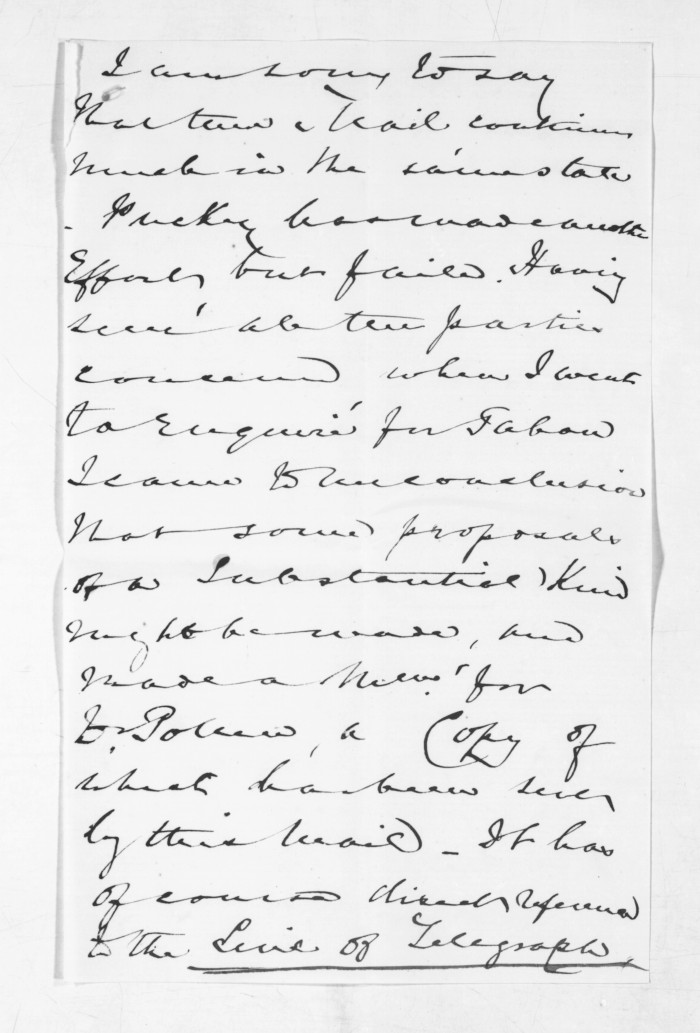 I am sorry to say
that the Mail continues
much in the same state
- Puckey has made another
Effort but failed. Having
seen all the parties
concerned when I went
to Enquire for
I came to the conclusion
that some proposals
of a Substantial Kind
might be made, and
made a Mem: for
Dr Pollen, a Copy of
which has been sent
by this Mail - It has
of course direct reference
to the Line of Telegraph.